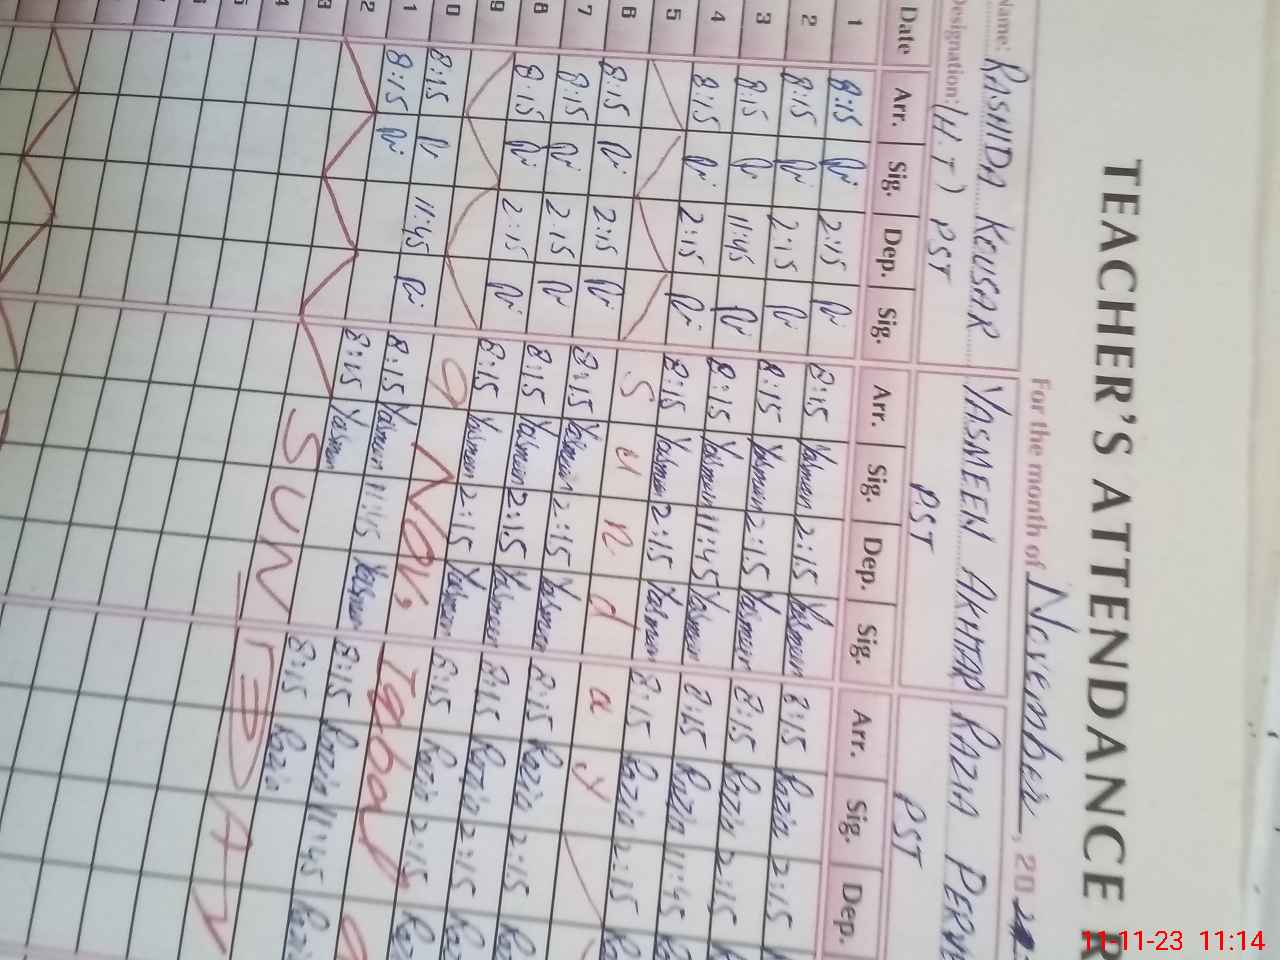 TEACHER'S ATTENDANCE R
For the month of November, 20
Name: RASHIDA KEUSAR YASMEEN AKHTAR RAZIA
Designation: (H.T) PST PST PST
Date Arr. Sig. Dep. Sig. Arr. Sig. Dep. Sig. Arr. Sig. Dep.
1 8:15 2:15 8:15 Yasmeen 2:15 Yasmeen 8:15 Razia 2:15
2 8:15 2:15 8:15 Yasmeen 2:15 Yasmeen 8:15 Razia 2:15
3 8:15 11:45 8:15 Yasmeen 11:45 Yasmeen 8:15 Razia 11:45
4 8:15 2:15 8:15 Yasmeen 2:15 Yasmeen 8:15 Razia 2:15
5 Sunday
6 8:15 2:15 8:15 Yasmeen 2:15 Yasmeen 8:15 Razia 2:15
7 8:15 2:15 8:15 Yasmeen 2:15 Yasmeen 8:15 Razia 2:15
8 8:15 2:15 8:15 Yasmeen 2:15 Yasmeen 8:15 Razia 2:15
9 9 Nov, Iqbal
0 8:15 11:45 8:15 Yasmeen 11:45 Yasmeen 8:15 Razia 11:45
1 8:15 8:15 Yasmeen 8:15 Razia
2 SUNDAY
3
4
5
11-11-23 11:14